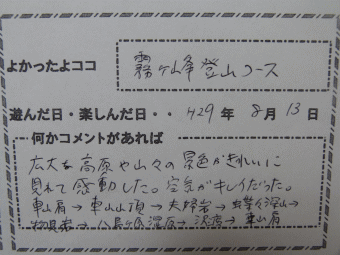 よかったよココ 霧ヶ峰登山コース
遊んだ日・楽しんだ日・・H29年 8月 13日
何かコメントがあれば
広大な高原や山々の景色がきれいに
見れて感動した。空気がキレイだった。
車山肩→車山山頂→夫婦岩→蝶々深山→
物見岩→八島ヶ原湿原→沢渡→車山肩